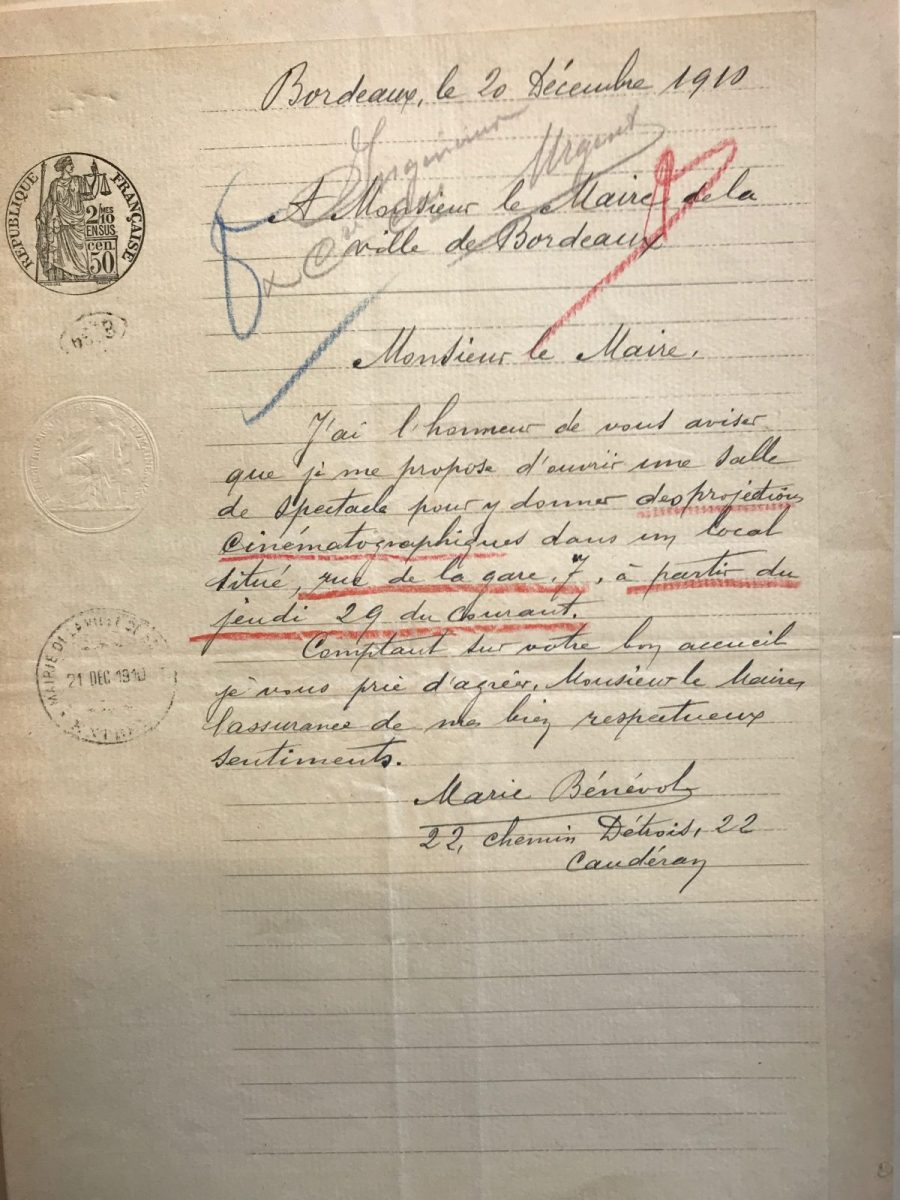 Bordeaux, le 20 Décembre 1910
Ingénieur
Urgent
A Monsieur le Maire de la
ville de Bordeaux
RÉPUBLIQUE FRANÇAISE
2/10MES
EN SUS
cen.
50
Monsieur le Maire,
J'ai l'honneur de vous aviser
que je me propose d'ouvrir une salle
de spectacle pour y donner des projections
cinématographiques dans un local
situé, rue de la gare, 7, à partir du
jeudi 29 du courant.
Comptant sur votre bon accueil
je vous prie d'agréer, Monsieur le Maire,
l'assurance de mes bien respectueux
sentiments.
MAIRIE DE LA VILLE DE
21 DEC 1910
Marie Bénévol
22, chemin Détrois, 22
Caudéran